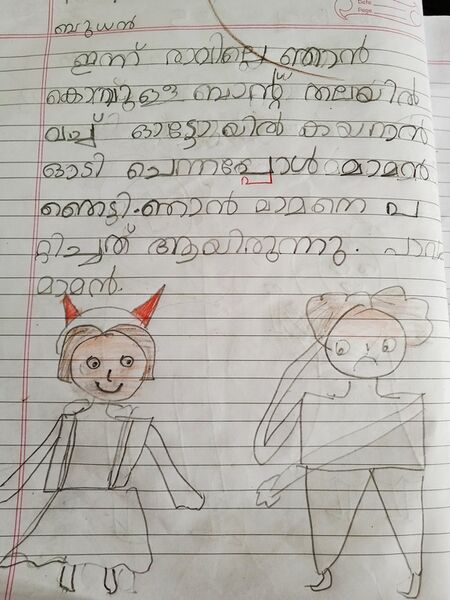 Date
Page
ബുധൻ
ഇന്ന് രാവിലെ ഞാൻ
കൊമ്പുള്ള ബാന്റ് തലയിൽ
വച്ച് ഓട്ടോയിൽ കയറാൻ
ഓടി ചെന്നപ്പോൾ മാമൻ
ഞെട്ടി. ഞാൻ മാമനെ പ
റ്റിച്ചത് ആയിരുന്നു. പാവം
മാമൻ.